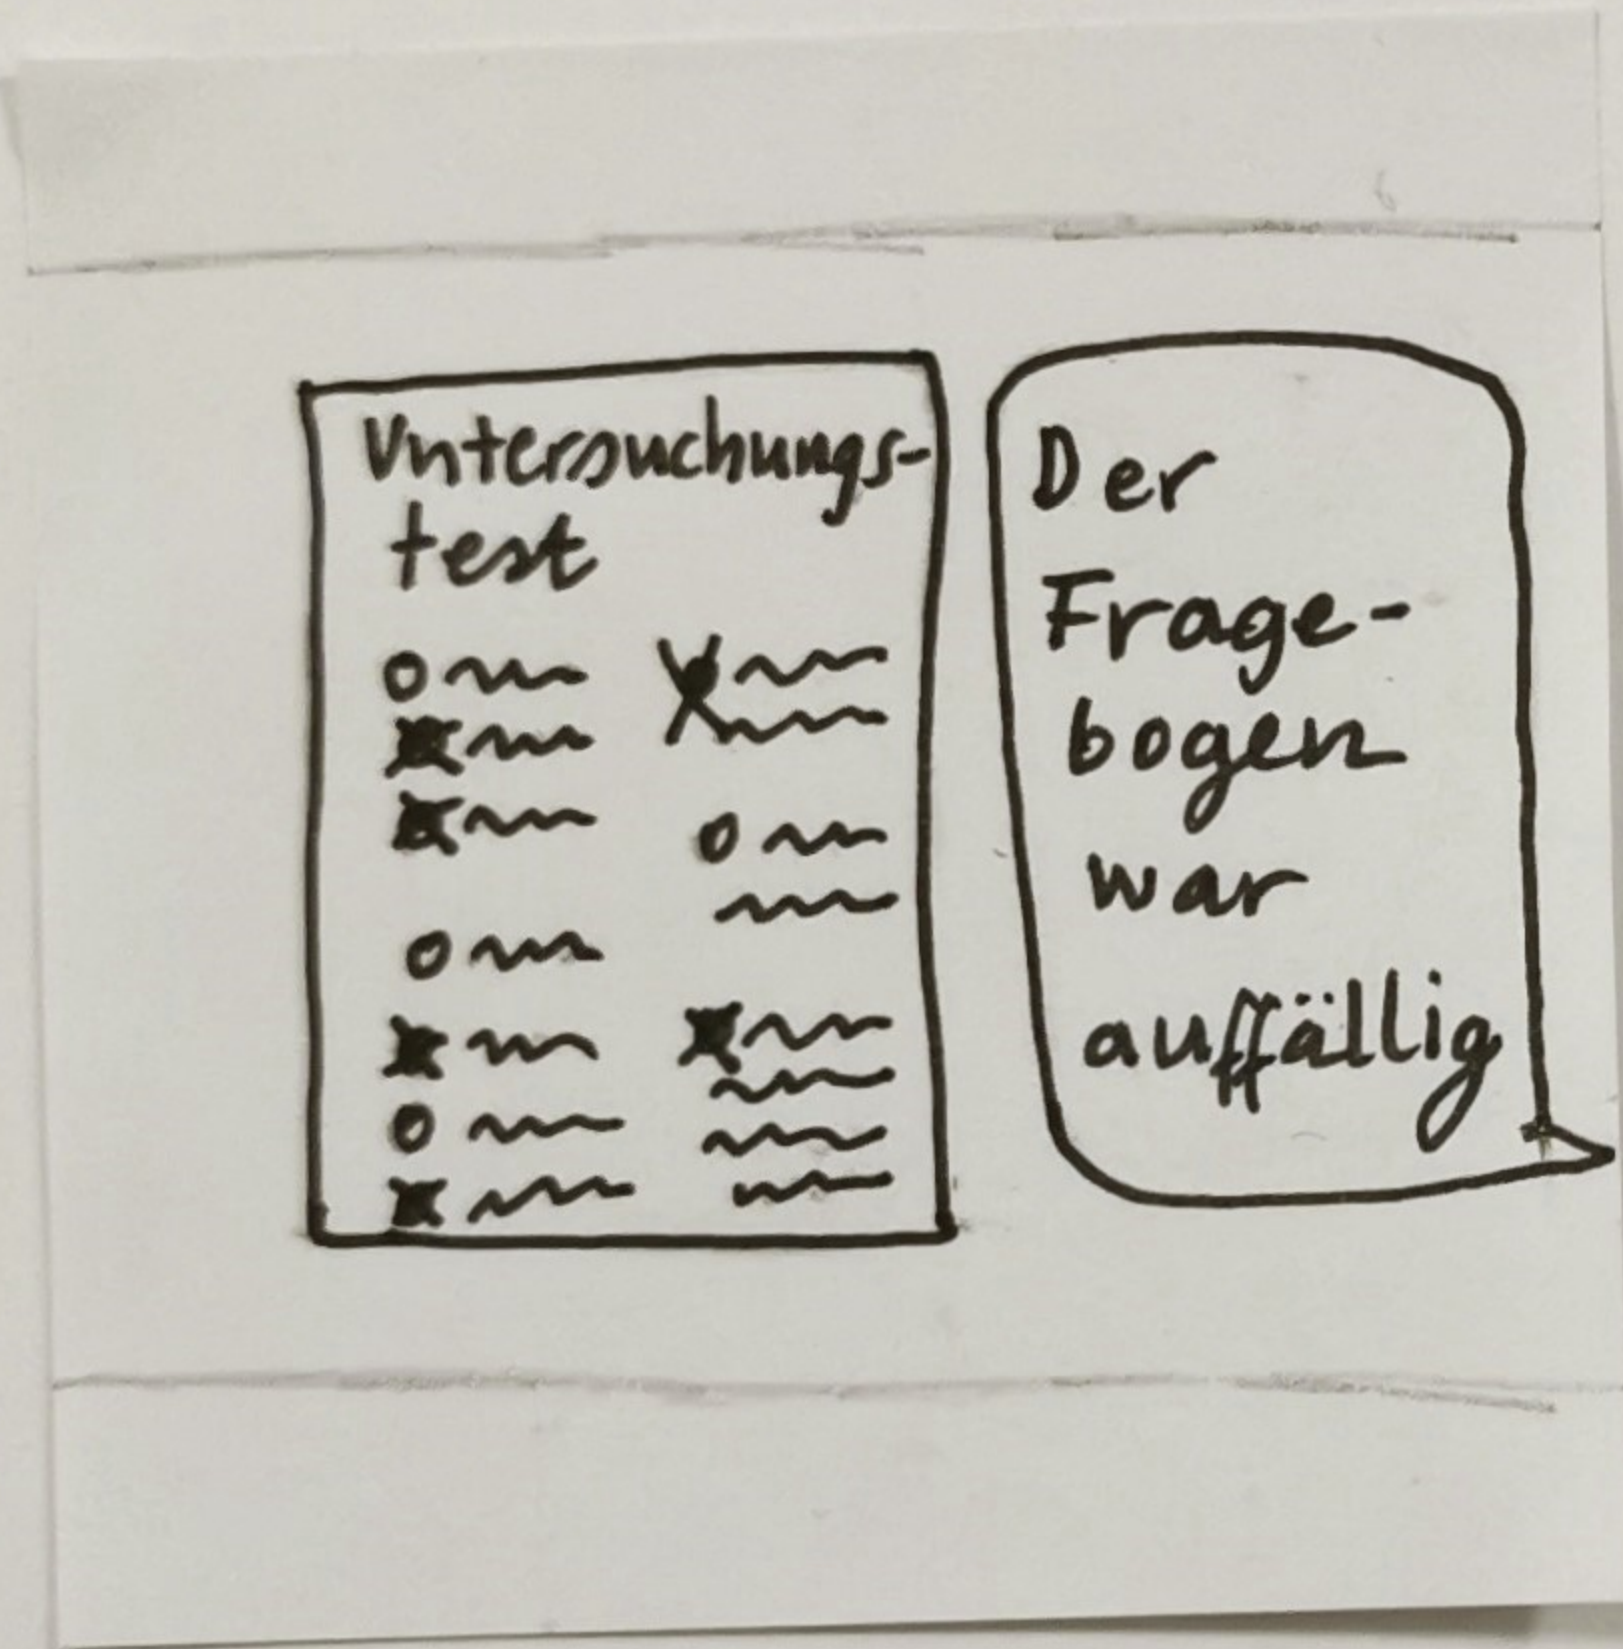 Untersuchungs-
test
Der
Frage-
bogen
war
auffällig